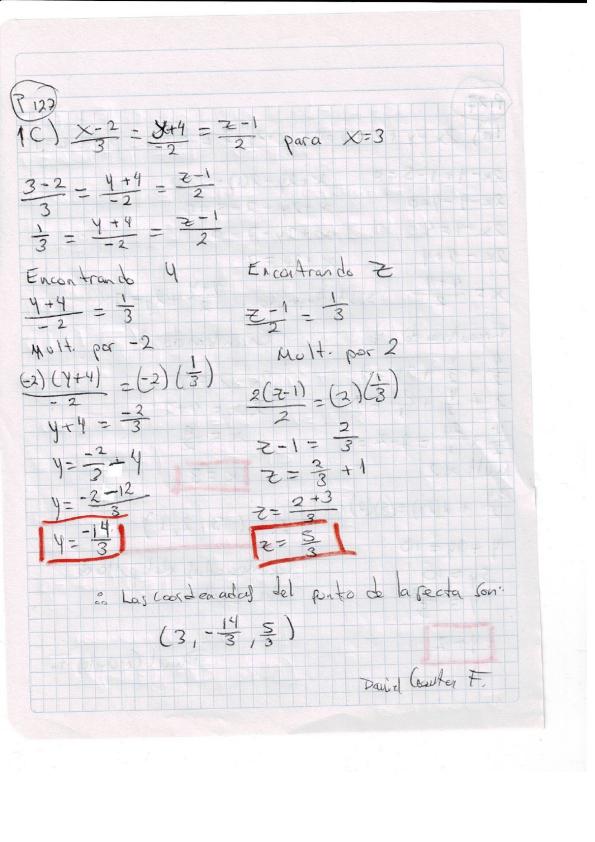 P 127
1C) (x-2)/3 = (y+4)/-2 = (z-1)/2 para x=3
(3-2)/3 = (y+4)/-2 = (z-1)/2
1/3 = (y+4)/-2 = (z-1)/2
Encontrando y
(y+4)/-2 = 1/3
Mult. por -2
(-2)(y+4)/-2 = (-2)(1/3)
y+4 = -2/3
y = -2/3 - 4
y = (-2-12)/3
y = -14/3
Encontrando z
(z-1)/2 = 1/3
Mult. por 2
2(z-1)/2 = (2)(1/3)
z-1 = 2/3
z = 2/3 + 1
z = (2+3)/3
z = 5/3
∴ Las coordenadas del punto de la recta son:
(3, -14/3, 5/3)
David F.